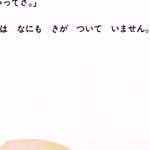 ってさ。」
は なにも きが ついて いません。